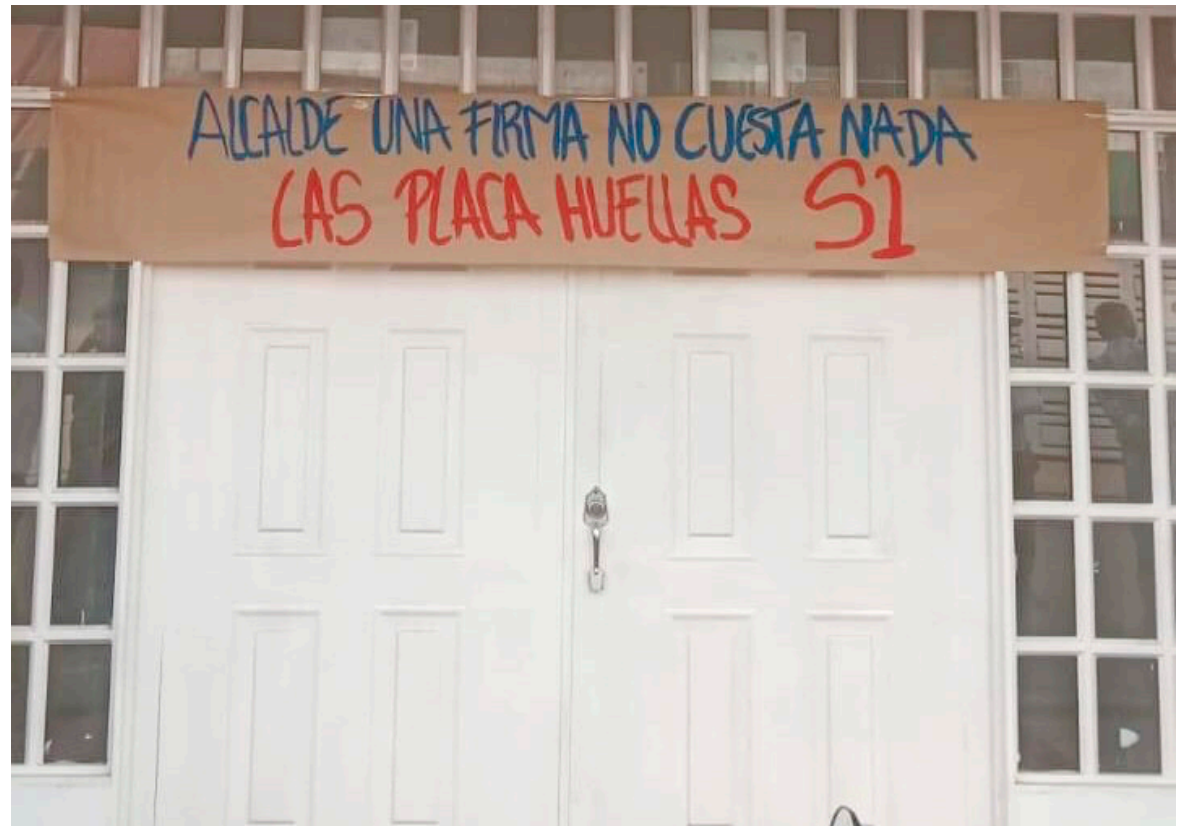 ALCALDE UNA FIRMA NO CUESTA NADA
LAS PLACA HUELLAS SI